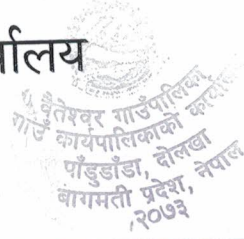 र्यालय
बैतेश्वर गाउँपालिका
गाउँ कार्यपालिकाको कार्यालय
पाँडुडाँडा, दोलखा
बागमती प्रदेश, नेपाल
,२०७३